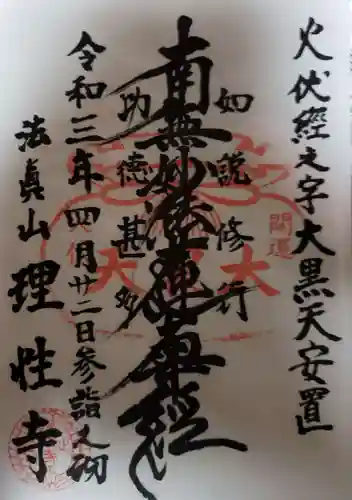 火伏經之字大黒天安置
如説修行
南無妙法蓮華経
功徳甚多
令和三年四月廿二日参詣之砌
法眞山
理性寺
開運
大黒天